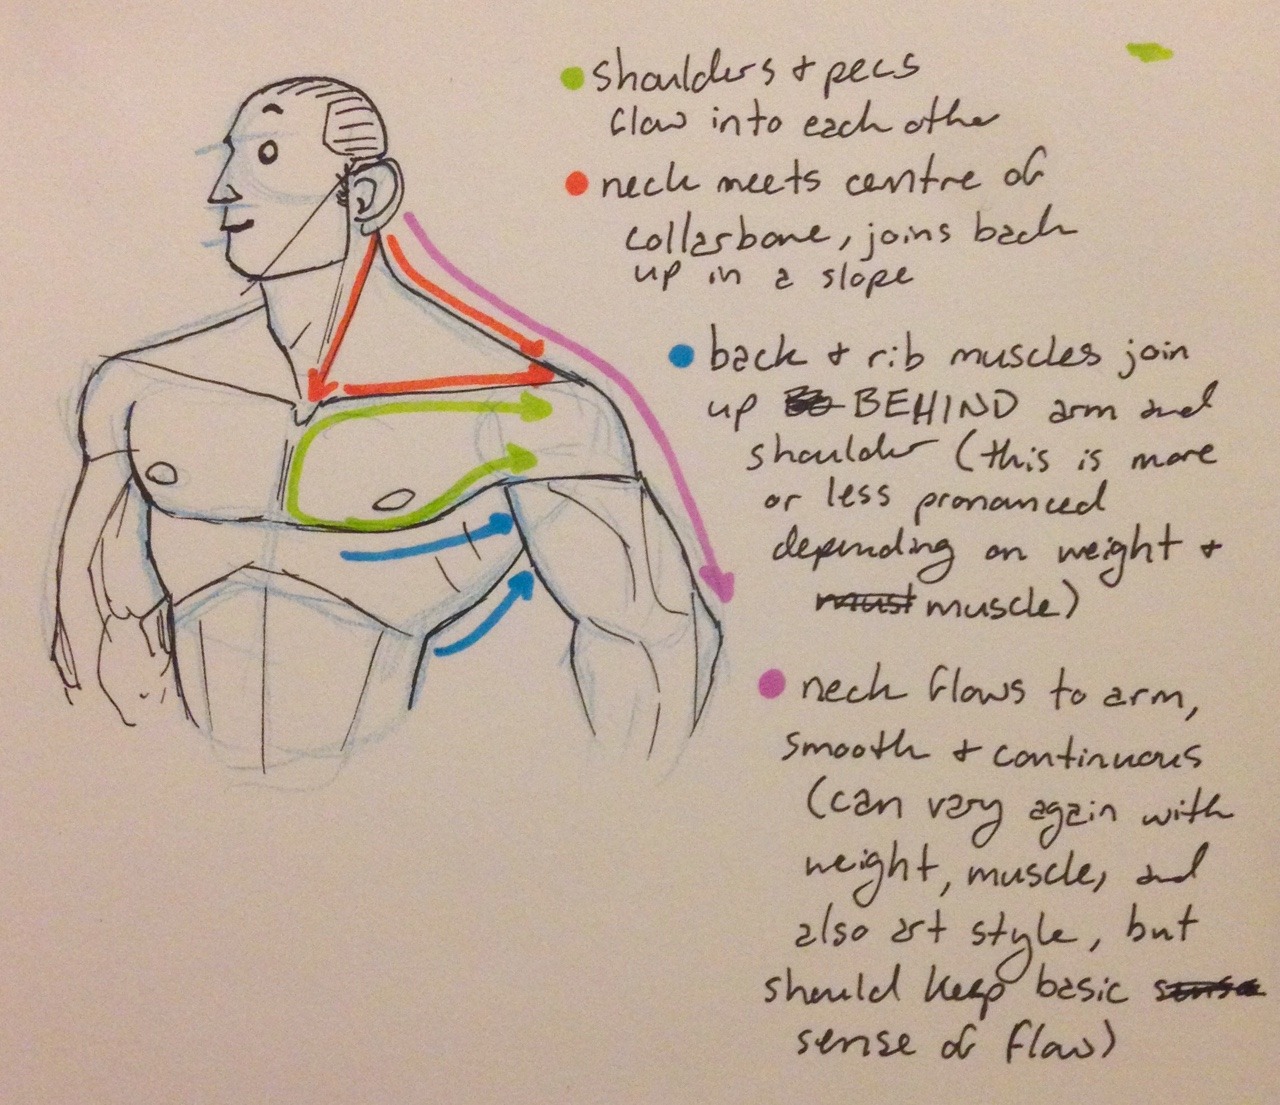 shoulders & pecs
flow into each other
neck meets centre of
collarbone, joins back
up in a slope
back & rib muscles join
up BEHIND arm and
shoulder (this is more
or less pronounced
depending on weight &
must muscle)
neck flows to arm,
smooth & continuous
(can vary again with
weight, muscle, and
also art style, but
should keep basic sense
sense of flow)